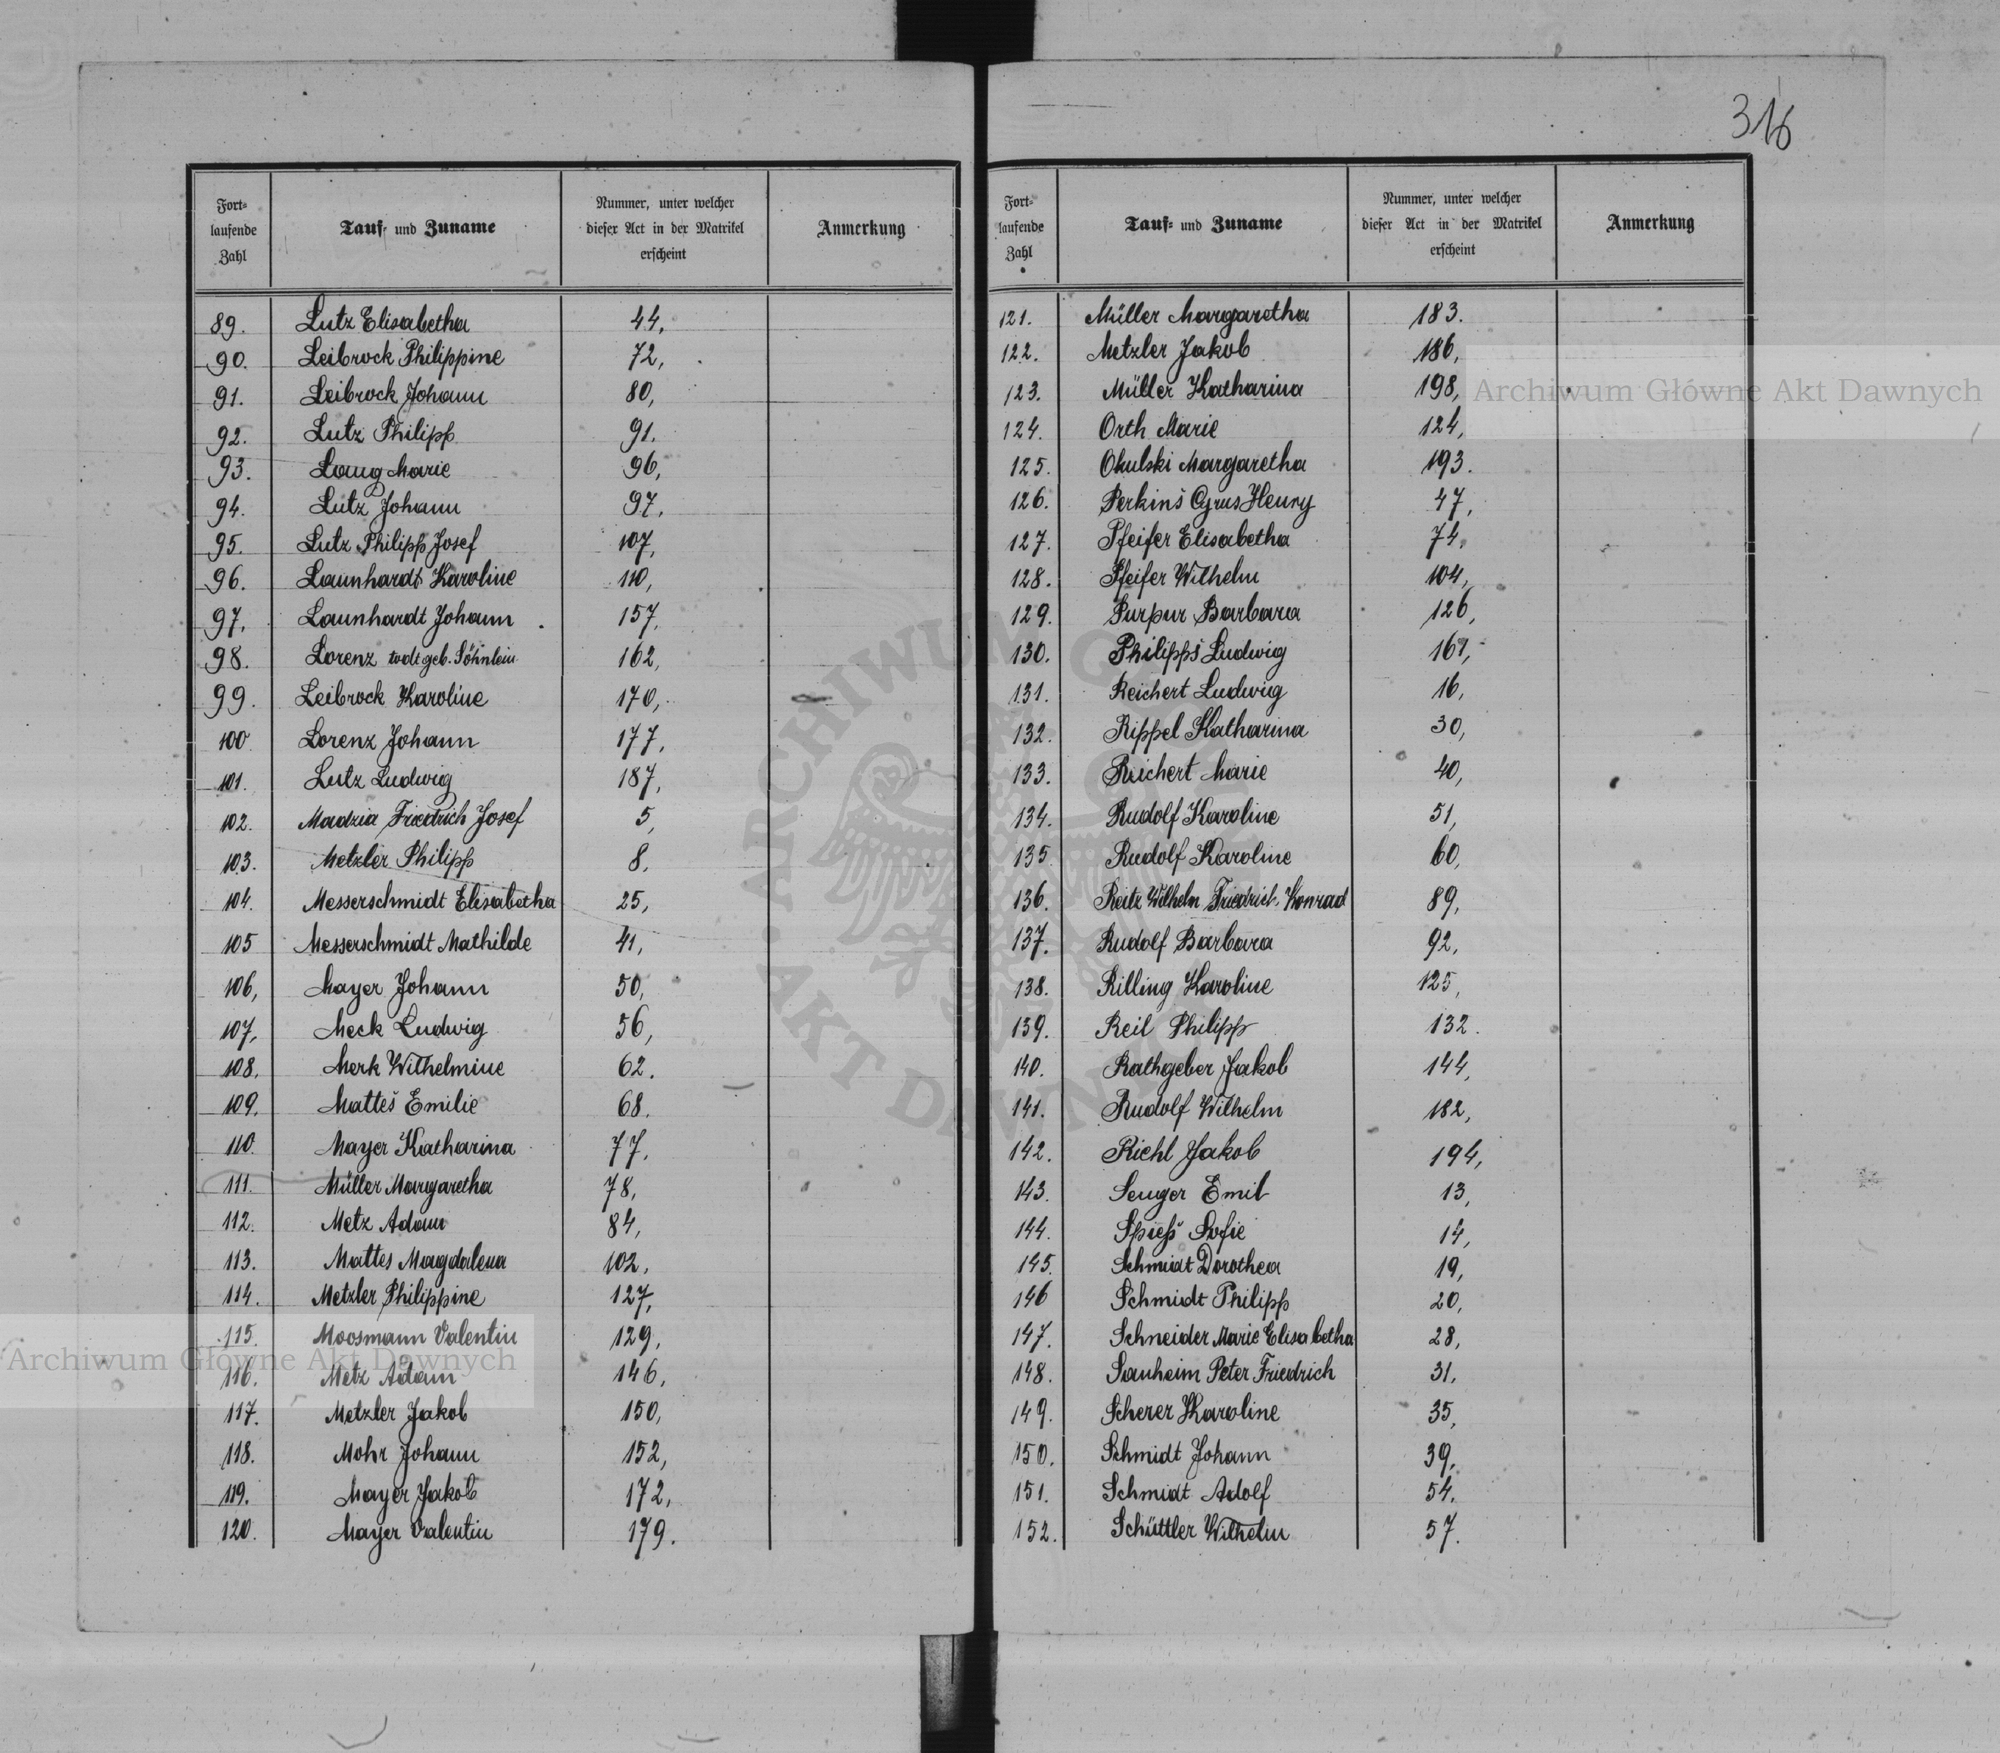 316
Fort-
laufende
Zahl
Tauf- und Zuname
Nummer, unter welcher
dieser Act in der Matrikel
erscheint
Anmerkung
89. Lutz Elisabetha 44,
90. Leibrock Philippine 72,
91. Leibrock Johann 80,
92. Lutz Philipp 91.
93. Lang Marie 96,
94. Lutz Johann 97,
95. Lutz Philipp Josef 107,
96. Launhardt Karoline 110,
97. Launhardt Johann 157,
98. Lorenz todt geb. Söhnlein 162,
99. Leibrock Karoline 170,
100 Lorenz Johann 177,
101. Lutz Ludwig 187,
102. Madzia Friedrich Josef 5,
103. Metzler Philipp 8.
104. Messerschmidt Elisabetha 25,
105 Messerschmidt Mathilde 41,
106, Mayer Johann 50,
107, Meck Ludwig 56,
108. Merk Wilhelmine 62.
109. Mattes Emilie 68.
110. Mayer Katharina 77.
111. Müller Margaretha 78,
112. Metz Adam 84,
113. Mattes Magdalena 102,
114. Metzler Philippine 127,
115. Moosmann Valentin 129,
116. Metz Adam 146,
117. Metzler Jakob 150,
118. Mohr Johann 152,
119. Mayer Jakob 172,
120. Mayer Valentin 179.
Fort-
laufende
Zahl
Tauf- und Zuname
Nummer, unter welcher
dieser Act in der Matrikel
erscheint
Anmerkung
121. Müller Margaretha 183.
122. Metzler Jakob 186,
123. Müller Katharina 198,
124. Orth Marie 124,
125. Okulski Margaretha 193.
126. Perkins Cyrus Henry 47,
127. Pfeifer Elisabetha 74,
128. Pfeifer Wilhelm 104,
129. Purpur Barbara 126,
130. Philipps Ludwig 161,
131. Reichert Ludwig 16,
132. Rippel Katharina 30,
133. Reichert Marie 40,
134. Rudolf Karoline 51,
135 Rudolf Karoline 60,
136. Reitz Wilhelm Friedrich Konrad 89,
137. Rudolf Barbara 92,
138. Rilling Karoline 125,
139. Reil Philipp 132.
140. Rathgeber Jakob 144,
141. Rudolf Wilhelm 182,
142. Riehl Jakob 194,
143. Senger Emil 13,
144. Spieß Sofie 14,
145. Schmidt Dorothea 19,
146 Schmidt Philipp 20,
147. Schneider Marie Elisabetha 28,
148. Sauheim Peter Friedrich 31,
149. Scherer Karoline 35,
150. Schmidt Johann 39,
151. Schmidt Adolf 54,
152. Schüttler Wilhelm 57.
Archiwum Główne Akt Dawnych
Archiwum Główne Akt Dawnych